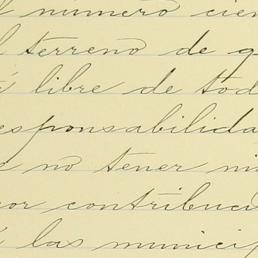 l número cien
l terreno de q
á libre de tod
esponsabilida
e no tener ni
or contribuci
á las municip